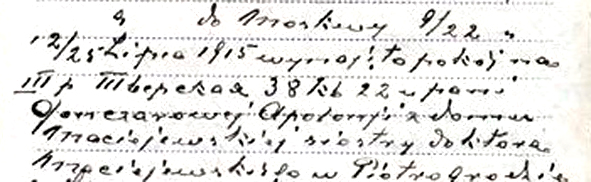 do Moskwy 9/22 "
12/25 Lipca 1915 wynajęto pokój na
III p Тверская 38 кв 22 u pani
Gonczarowej Apolonji z domu
Maciejewskiej siostry doktora
Maciejewskiego w Piotrogrodzie